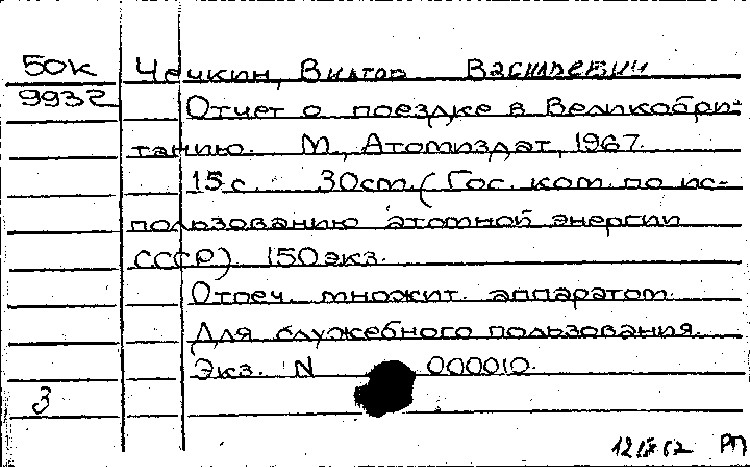 50к Чечкин, Виктор Васильевич
9932 Отчет о поездке в Великобри-
танию. М., Атомиздат, 1967.
15 с. 30 cm. (Гос. ком. по ис-
пользованию атомной энергии
СССР). 150 экз.
Отпеч. множит. аппаратом.
Для служебного пользования.
Экз. N 000010.
3
РП